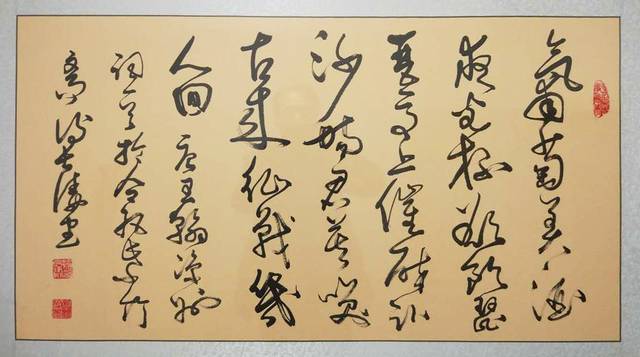 葡萄美酒
夜光杯欲飲琵
琶馬上催醉臥
沙場君莫笑
古來征戰幾
人回唐王翰涼州
詞於合肥
書